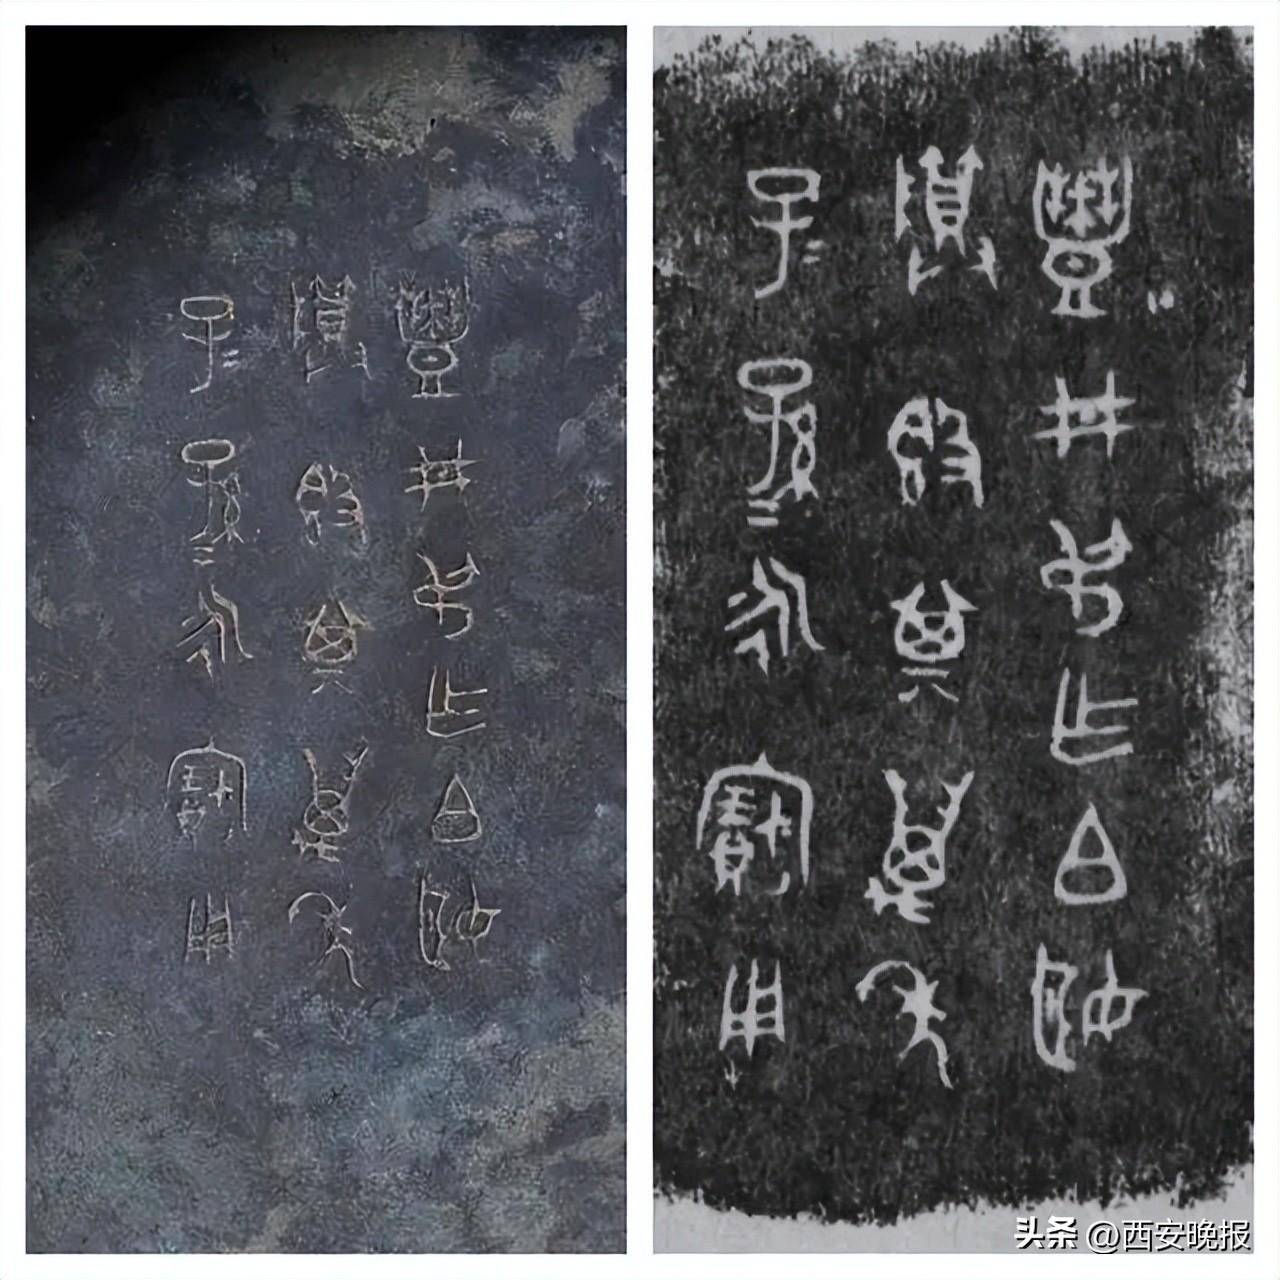 豐井叔乍白姬
尊簋其萬年
子=孫=永寶用
豐井叔乍白姬
尊簋其萬年
子=孫=永寶用
头条 @西安晚报